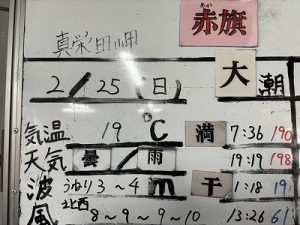 真栄田岬
赤旗
2/25(日)
大潮
気温 19℃ 満 7:36 190
天気 曇/雨 19:19 198
波 うねり3~4m 干 1:18 19
風 北西 8~9~9~10 13:26 61